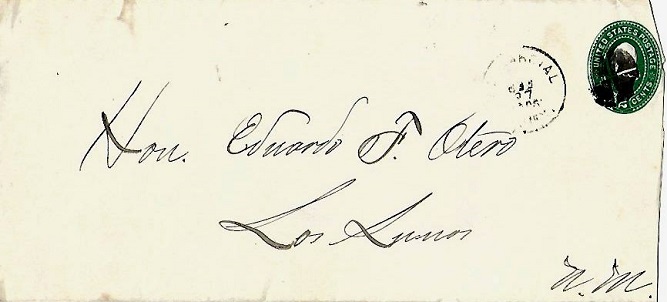 UNITED STATES POSTAGE
CENTS
27
Hon. Eduardo F. Otero
Los Lunas
N. M.